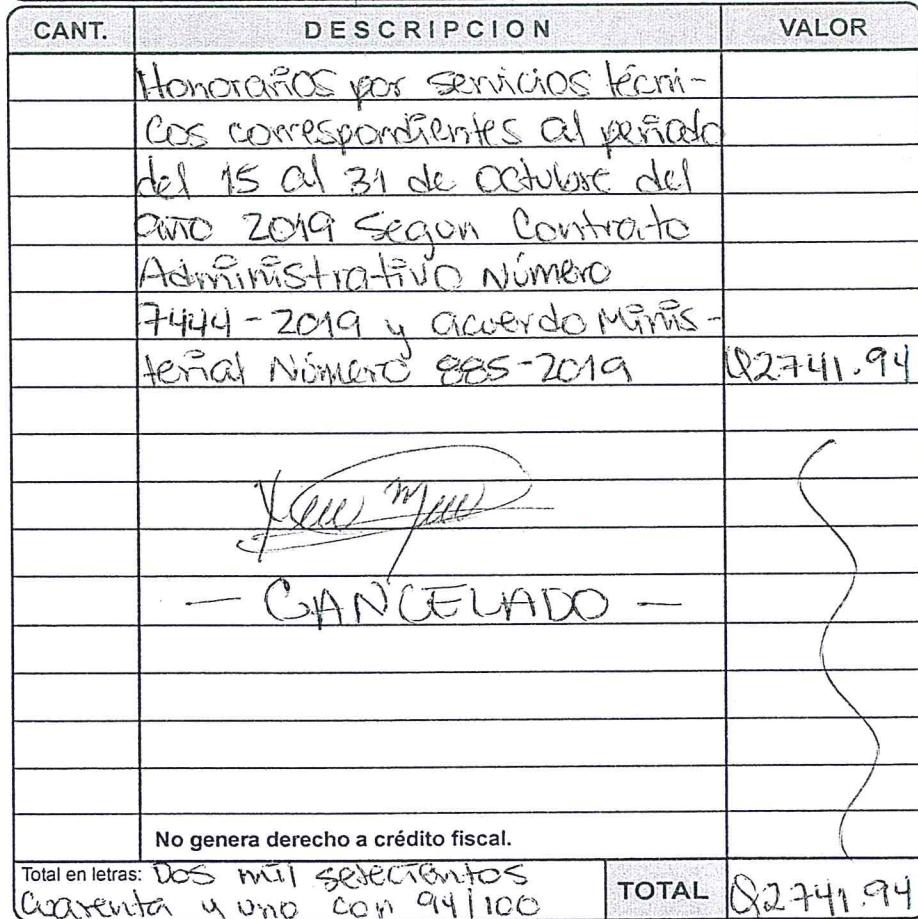 CANT. DESCRIPCION VALOR
Honorarios por servicios técni-
cos correspondientes al periodo
del 15 al 31 de Octubre del
año 2019 Segun Contrato
Administrativo Número
7444-2019 y acuerdo Minis-
terial Número 885-2019 Q2741.94
- CANCELADO -
No genera derecho a crédito fiscal.
Total en letras: Dos mil setecientos
Cuarenta y uno con 94/100 TOTAL Q2741.94